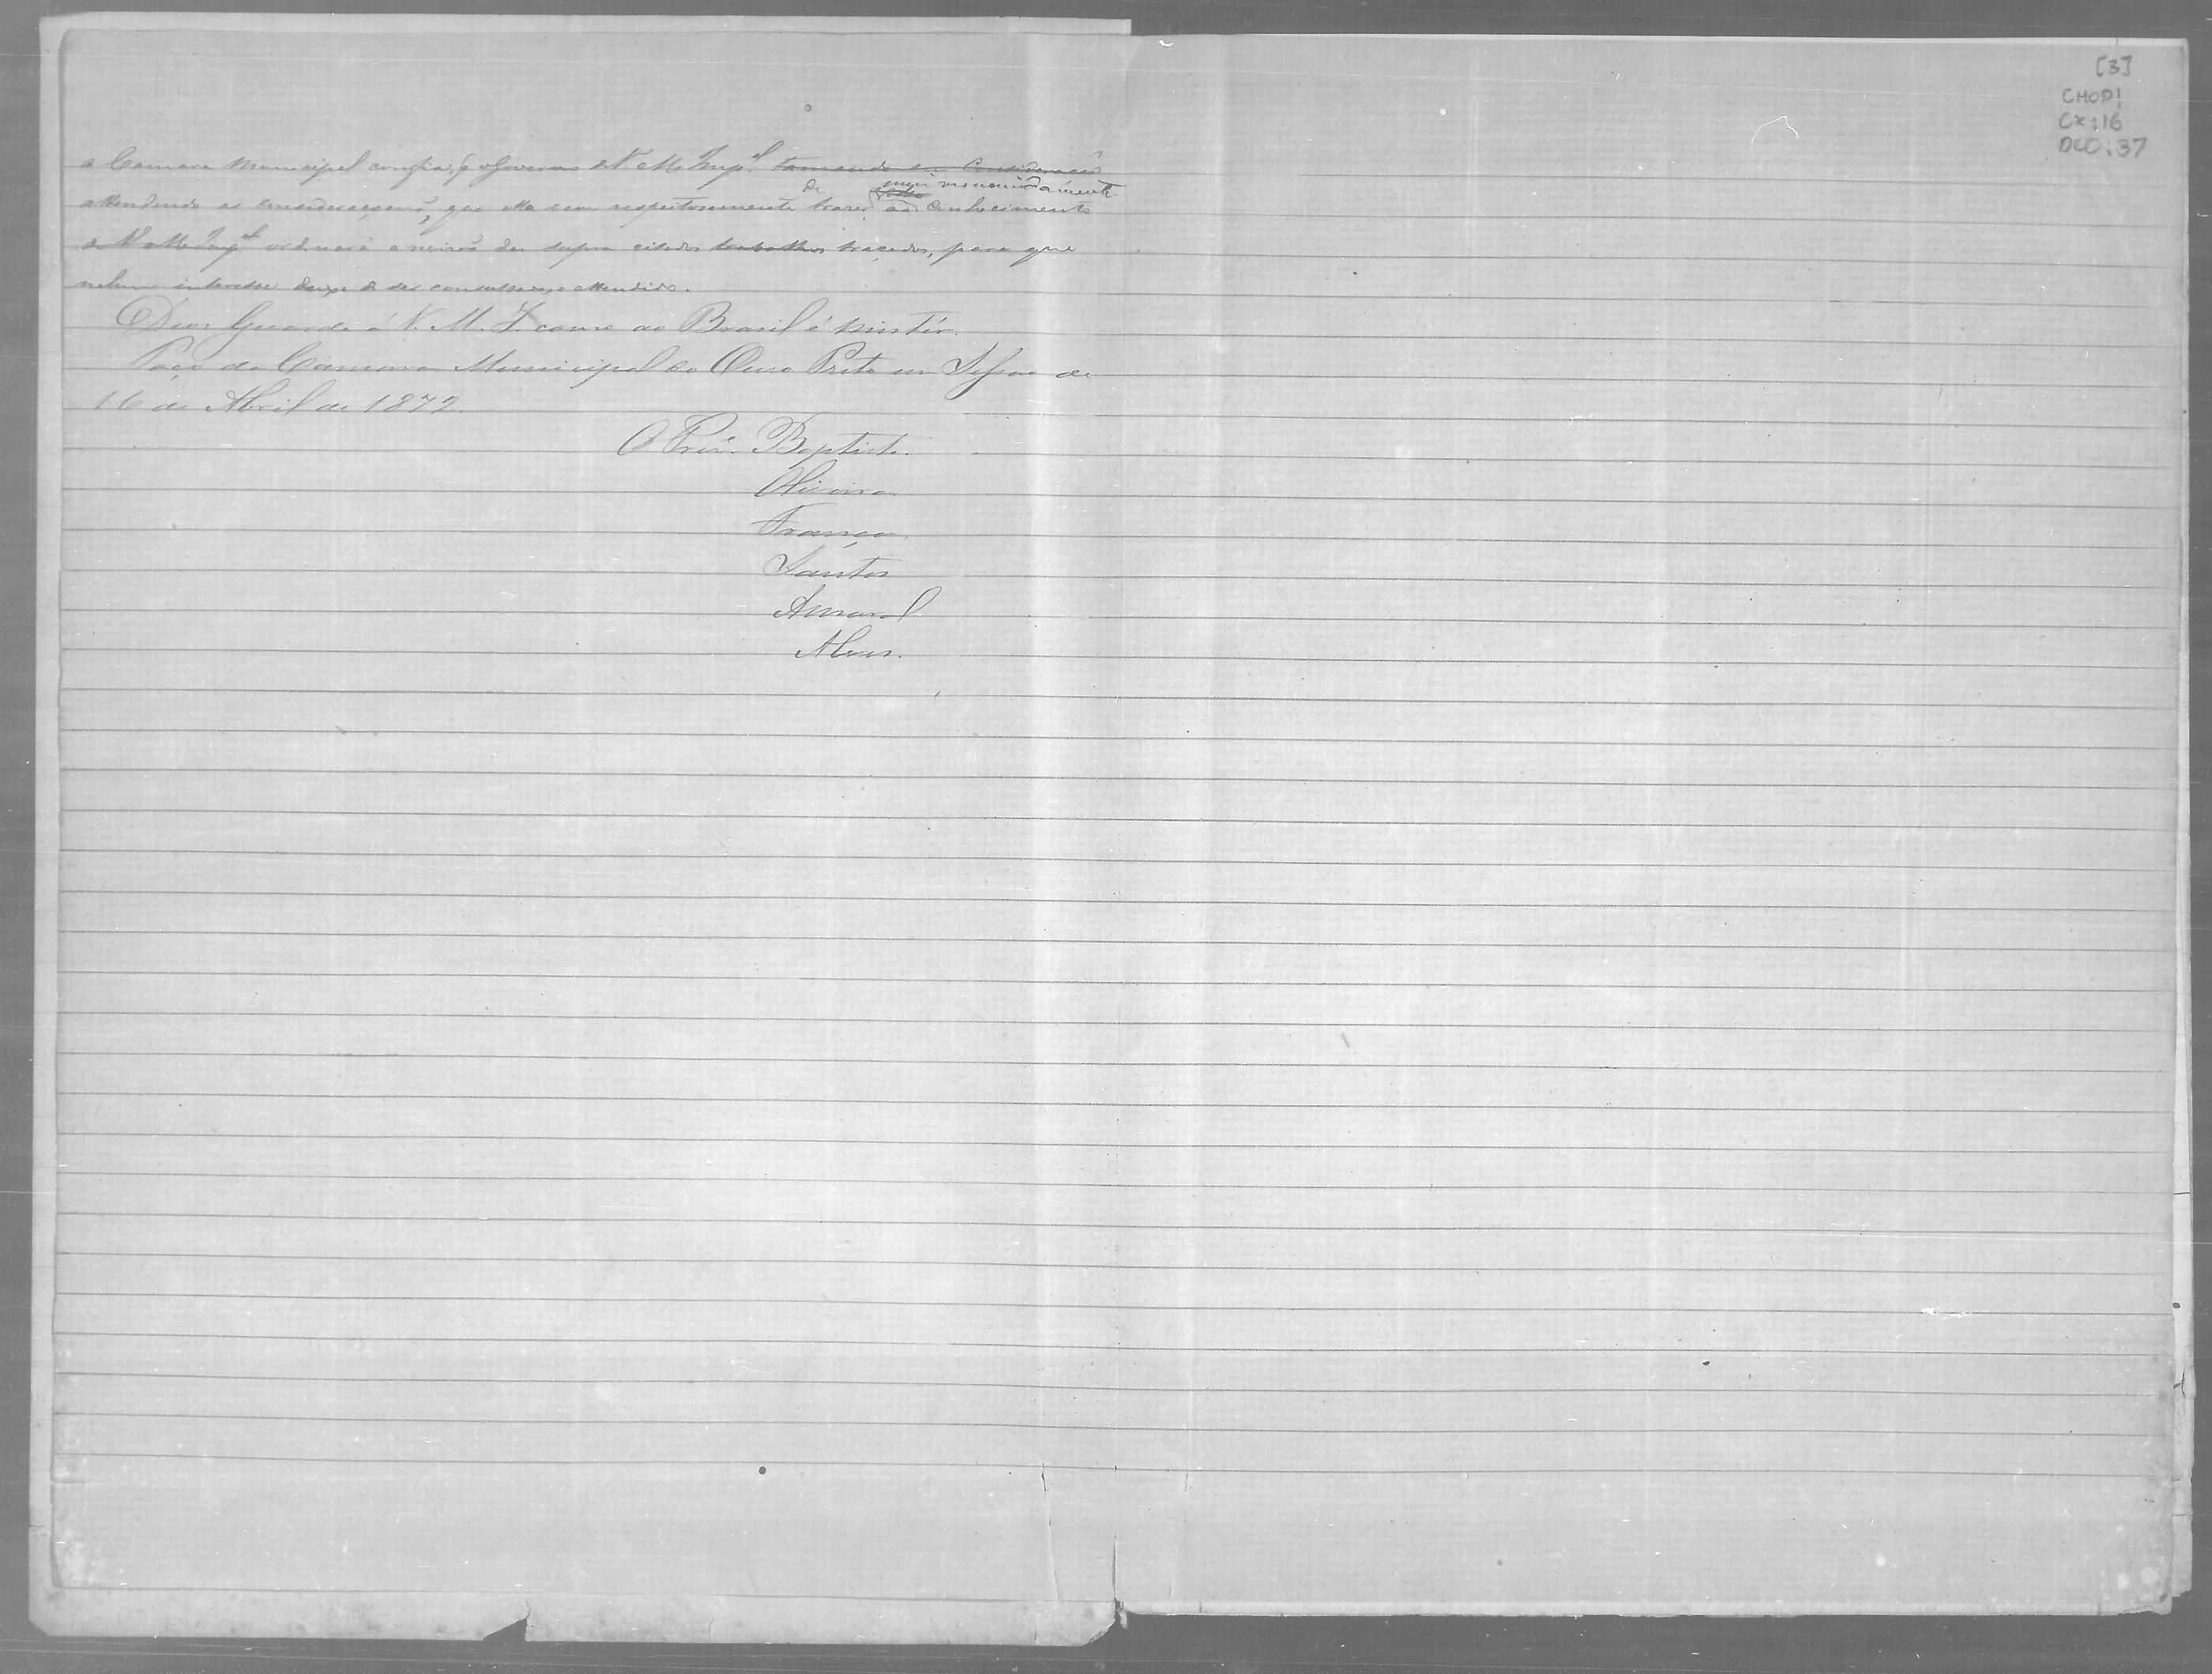 [3]
CMOP!
Cx: 16
DOC: 37
a Camara Municipal confia, q̃ o Governo de V. M. Imp.al tomando em Consideração
mui resumidamente
attendendo as considerações, que ella vem respeitosamente trazer ao Conhecimento
de V. M. Imp.al ordenará a revisão dos supra citados trabalhos traçados, para que
nehum interesse deixe de ser consultado, e attendido.
Deos Guarde á V. M. I. como ao Brasil é mistér.
Paço da Camara Municipal do Ouro Preto em Sessão de
16 de Abril de 1872.
O Pres. Baptista.
Oliveira
França
Santos
Amaral
Alves.